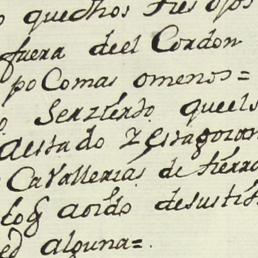 o quechos Tres ojos
fuera deel Cordon
po Comas omenos=
o Serziendo queels
aestado Zestagozan
Cavallerias de tierra
log aoido desustit
ed alguna=.